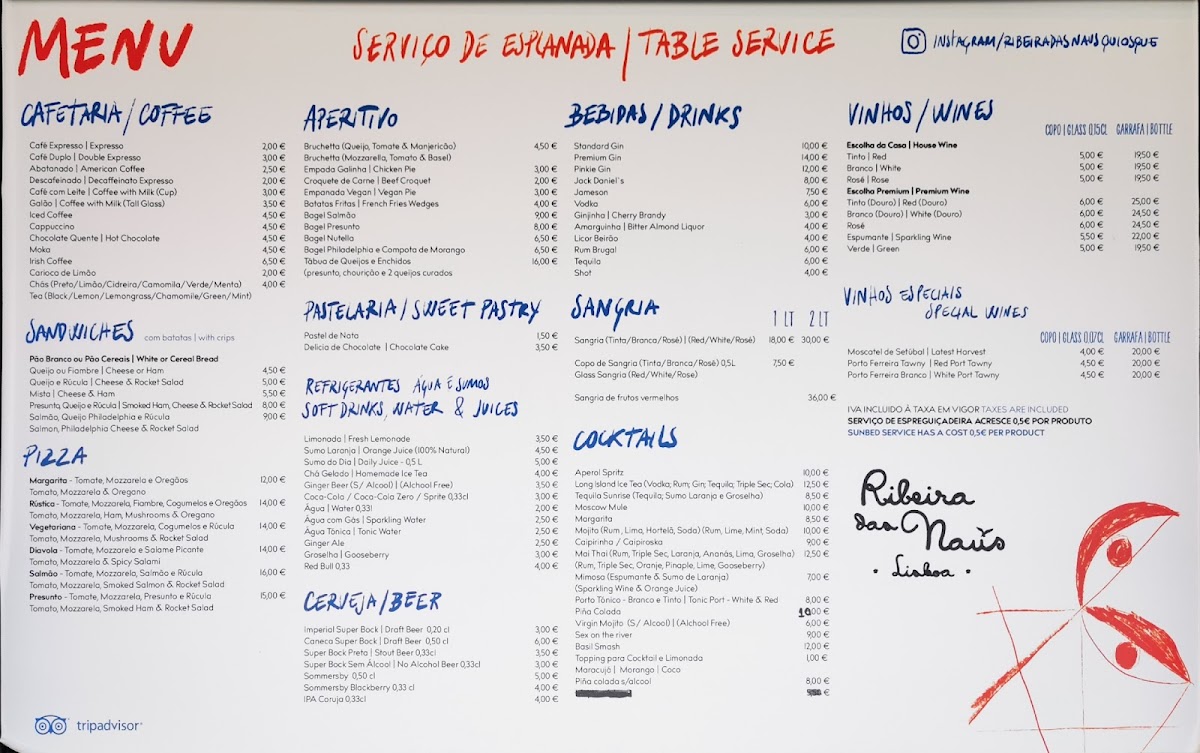 MENU
SERVIÇO DE ESPLANADA / TABLE SERVICE
INSTAGRAM/RIBEIRADASNAUSQUIOSQUE
CAFETARIA / COFFEE
Café Expresso | Expresso 2,00 €
Café Duplo | Double Expresso 3,00 €
Abatanado | American Coffee 2,50 €
Descafeinado | Decaffeinato Expresso 2,00 €
Café com Leite | Coffee with Milk (Cup) 3,00 €
Galão | Coffee with Milk (Tall Glass) 3,50 €
Iced Coffee 4,50 €
Cappuccino 4,50 €
Chocolate Quente | Hot Chocolate 4,50 €
Moka 4,50 €
Irish Coffee 6,50 €
Carioca de Limão 2,00 €
Chás (Preto/Limão/Cidreira/Camomila/Verde/Menta) 4,00 €
Tea (Black/Lemon/Lemongrass/Chamomile/Green/Mint)
SANDWICHES com batatas | with crips
Pão Branco ou Pão Cereais | White or Cereal Bread
Queijo ou Fiambre | Cheese or Ham 4,50 €
Queijo e Rúcula | Cheese & Rocket Salad 5,00 €
Mista | Cheese & Ham 5,50 €
Presunto, Queijo e Rúcula | Smoked Ham, Cheese & Rocket Salad 8,00 €
Salmão, Queijo Philadelphia e Rúcula 9,00 €
Salmon, Philadelphia Cheese & Rocket Salad
PIZZA
Margarita - Tomate, Mozzarela e Oregãos 12,00 €
Tomato, Mozzarela & Oregano
Rústica - Tomate, Mozzarela, Fiambre, Cogumelos e Oregãos 14,00 €
Tomato, Mozzarela, Ham, Mushrooms & Oregano
Vegetariana - Tomate, Mozzarela, Cogumelos e Rúcula 14,00 €
Tomato, Mozzarela, Mushrooms & Rocket Salad
Diavola - Tomate, Mozzarela e Salame Picante 14,00 €
Tomato, Mozzarela & Spicy Salami
Salmão - Tomate, Mozzarela, Salmão e Rúcula 16,00 €
Tomato, Mozzarela, Smoked Salmon & Rocket Salad
Presunto - Tomate, Mozzarela, Presunto e Rúcula 15,00 €
Tomato, Mozzarela, Smoked Ham & Rocket Salad
tripadvisor
APERITIVO
Bruchetta (Queijo, Tomate & Manjericão) 4,50 €
Bruchetta (Mozzarella, Tomato & Basel)
Empada Galinha | Chicken Pie 3,00 €
Croquete de Carne | Beef Croquet 2,00 €
Empanada Vegan | Vegan Pie 3,00 €
Batatas Fritas | French Fries Wedges 4,00 €
Bagel Salmão 9,00 €
Bagel Presunto 8,00 €
Bagel Nutella 6,50 €
Bagel Philadelphia e Compota de Morango 6,50 €
Tábua de Queijos e Enchidos 16,00 €
(presunto, chourição e 2 queijos curados
PASTELARIA / SWEET PASTRY
Pastel de Nata 1,50 €
Delicia de Chocolate | Chocolate Cake 3,50 €
REFRIGERANTES ÁGUA E SUMOS
SOFT DRINKS, WATER & JUICES
Limonada | Fresh Lemonade 3,50 €
Sumo Laranja | Orange Juice (100% Natural) 4,50 €
Sumo do Dia | Daily Juice - 0,5 L 5,00 €
Chá Gelado | Homemade Ice Tea 4,00 €
Ginger Beer (S/ Alcool) | (Alchool Free) 3,50 €
Coca-Cola / Coca-Cola Zero / Sprite 0,33cl 3,00 €
Água | Water 0,33l 2,00 €
Água com Gás | Sparkling Water 2,50 €
Água Tónica | Tonic Water 2,50 €
Ginger Ale 2,50 €
Groselha | Gooseberry 3,00 €
Red Bull 0,33 4,00 €
CERVEJA / BEER
Imperial Super Bock | Draft Beer 0,20 cl 3,00 €
Caneca Super Bock | Draft Beer 0,50 cl 6,00 €
Super Bock Preta | Stout Beer 0,33cl 3,50 €
Super Bock Sem Álcool | No Alcohol Beer 0,33cl 3,00 €
Sommersby 0,50 cl 5,00 €
Sommersby Blackberry 0,33 cl 4,00 €
IPA Coruja 0,33cl 4,00 €
BEBIDAS / DRINKS
Standard Gin 10,00 €
Premium Gin 14,00 €
Pinkie Gin 12,00 €
Jack Daniel's 8,00 €
Jameson 7,50 €
Vodka 6,00 €
Ginjinha | Cherry Brandy 3,00 €
Amarguinha | Bitter Almond Liquor 4,00 €
Licor Beirão 4,00 €
Rum Brugal 6,00 €
Tequila 6,00 €
Shot 4,00 €
SANGRIA 1 LT 2 LT
Sangria (Tinta/Branca/Rosé) | (Red/White/Rosé) 18,00 € 30,00 €
Copo de Sangria (Tinta/Branca/Rosé) 0,5L 7,50 €
Glass Sangria (Red/White/Rose)
Sangria de frutos vermelhos 36,00 €
COCKTAILS
Aperol Spritz 10,00 €
Long Island Ice Tea (Vodka; Rum; Gin; Tequila; Triple Sec; Cola) 12,50 €
Tequila Sunrise (Tequila; Sumo Laranja e Groselha) 8,50 €
Moscow Mule 10,00 €
Margarita 8,50 €
Mojito (Rum , Lima, Hortelã, Soda) (Rum, Lime, Mint, Soda) 10,00 €
Caipirinha / Caipiroska 9,00 €
Mai Thai (Rum, Triple Sec, Laranja, Ananás, Lima, Groselha) 12,50 €
(Rum, Triple Sec, Oranje, Pinaple, Lime, Gooseberry)
Mimosa (Espumante & Sumo de Laranja) 7,00 €
(Sparkling Wine & Orange Juice)
Porto Tónico - Branco e Tinto | Tonic Port - White & Red 8,00 €
Piña Colada 10,00 €
Virgin Mojito (S/ Alcool) | (Alchool Free) 6,00 €
Sex on the river 9,00 €
Basil Smash 12,00 €
Topping para Cocktail e Limonada 1,00 €
Maracujá | Morango | Coco
Piña colada s/alcool 8,00 €
VINHOS / WINES
COPO | GLASS 0,15CL GARRAFA | BOTTLE
Escolha da Casa | House Wine
Tinto | Red 5,00 € 19,50 €
Branco | White 5,00 € 19,50 €
Rosé | Rose 5,00 € 19,50 €
Escolha Premium | Premium Wine
Tinto (Douro) | Red (Douro) 6,00 € 25,00 €
Branco (Douro) | White (Douro) 6,00 € 24,50 €
Rosé 6,00 € 24,50 €
Espumante | Sparkling Wine 5,50 € 22,00 €
Verde | Green 5,00 € 19,50 €
VINHOS ESPECIAIS
SPECIAL WINES
COPO | GLASS 0,07CL GARRAFA | BOTTLE
Moscatel de Setúbal | Latest Harvest 4,00 € 20,00 €
Porto Ferreira Tawny | Red Port Tawny 4,50 € 20,00 €
Porto Ferreira Branco | White Port Tawny 4,50 € 20,00 €
IVA INCLUIDO À TAXA EM VIGOR TAXES ARE INCLUDED
SERVIÇO DE ESPREGUIÇADEIRA ACRESCE 0,5€ POR PRODUTO
SUNBED SERVICE HAS A COST 0,5€ PER PRODUCT
Ribeira
das Naús
• Lisboa •